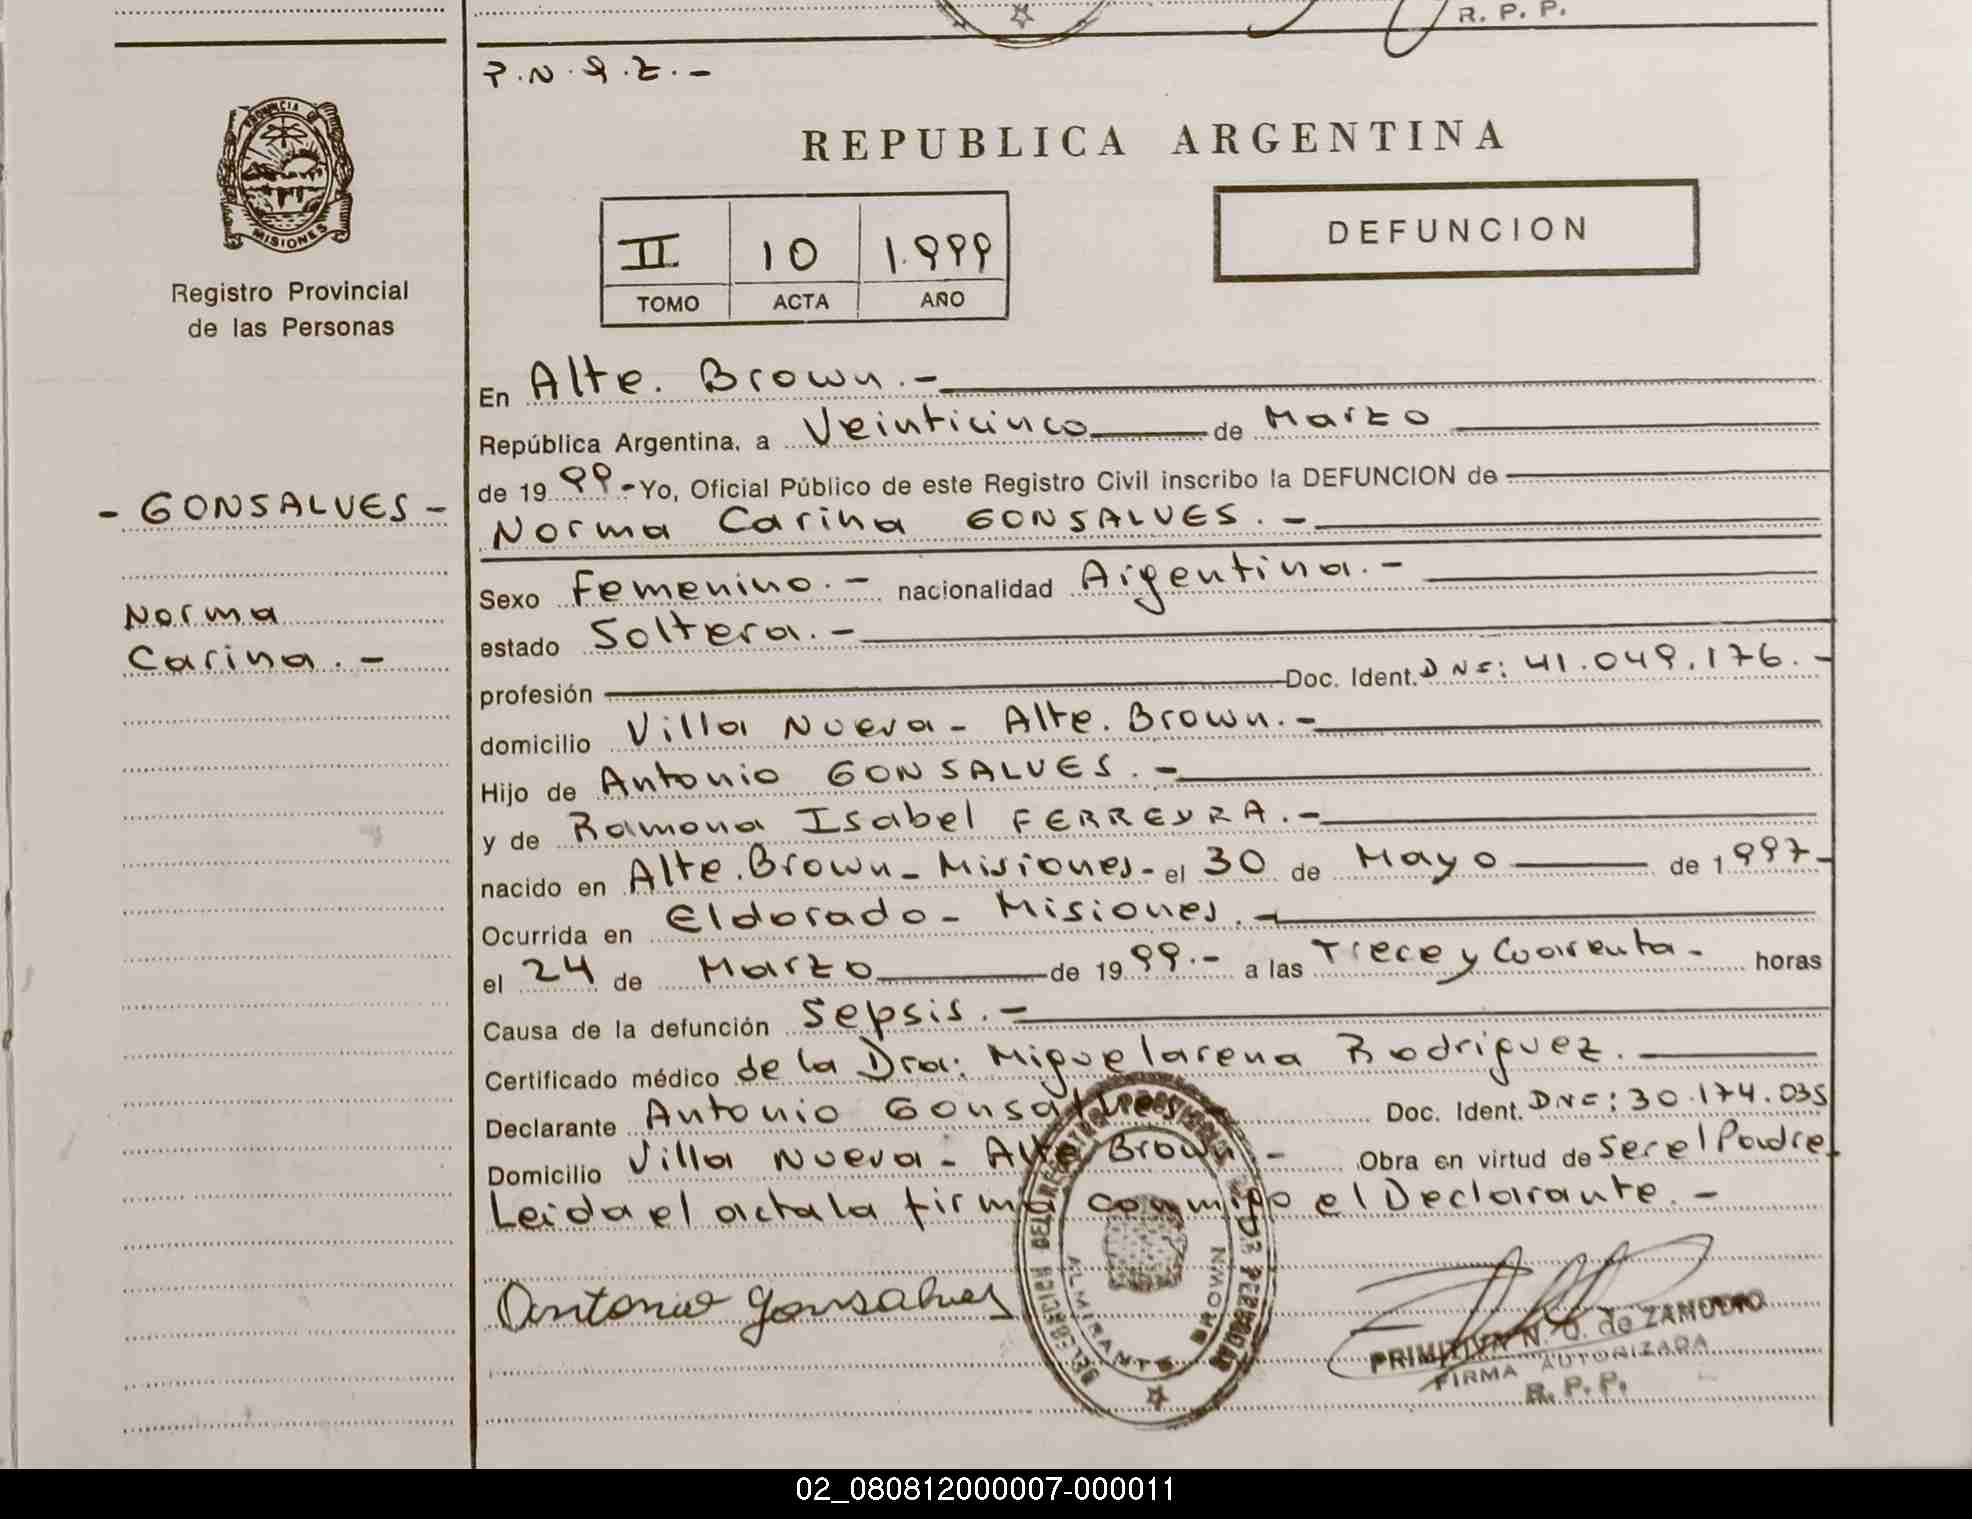 R. P. P.
P.N.Q.Z.-
PROVINCIA DE
MISIONES
Registro Provincial
de las Personas
REPUBLICA ARGENTINA
II 10 1.999
TOMO ACTA AÑO
DEFUNCION
En Alte. Brown.-
República Argentina, a Veinticinco de Marzo
de 1999.- Yo, Oficial Público de este Registro Civil inscribo la DEFUNCION de
- GONSALVES -
Norma Carina GONSALVES.-
Norma
Carina.-
Sexo Femenino.- nacionalidad Argentina.-
estado Soltera.-
profesión Doc. Ident. DNI: 41.049.176.-
domicilio Villa Nueva - Alte. Brown.-
Hijo de Antonio GONSALVES.-
y de Ramona Isabel FERREYRA.-
nacido en Alte. Brown - Misiones - el 30 de Mayo de 1997-
Ocurrida en Eldorado - Misiones.-
el 24 de Marzo de 1999.- a las Trece y Cuarenta- horas
Causa de la defunción Sepsis.-
Certificado médico de la Dra: Miguelarena Rodriguez.
Declarante Antonio Gonsalves Doc. Ident. DNI: 30.174.035
Domicilio Villa Nueva - Alte Brown.- Obra en virtud de Ser el Padre
Leida el acta la firma conmigo el Declarante.-
Antonio Gonsalves
ALMIRANTE BROWN
PRIMITIVA N. O. de ZAMUDIO
FIRMA AUTORIZADA
R. P. P.
02_080812000007-000011